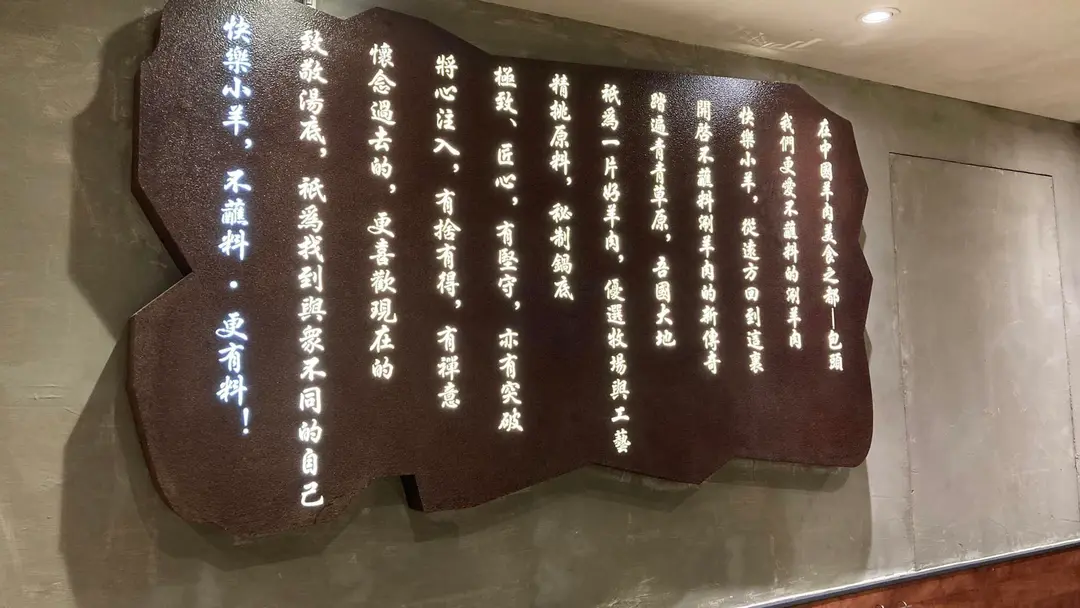 在中國羊肉美食之都—包頭
我們更愛不蘸料的涮羊肉
快樂小羊，從遠方回到這裏
開啓不蘸料涮羊肉的新傳奇
踏遍青青草原，吾國大地
祇為一片好羊肉，優選牧場與工藝
精挑原料，秘制鍋底
極致、匠心，有堅守，亦有突破
將心注入，有捨有得，有禪意
懷念過去的，更喜歡現在的
致敬湯底，祇爲找到與衆不同的自己
快樂小羊，不蘸料·更有料！